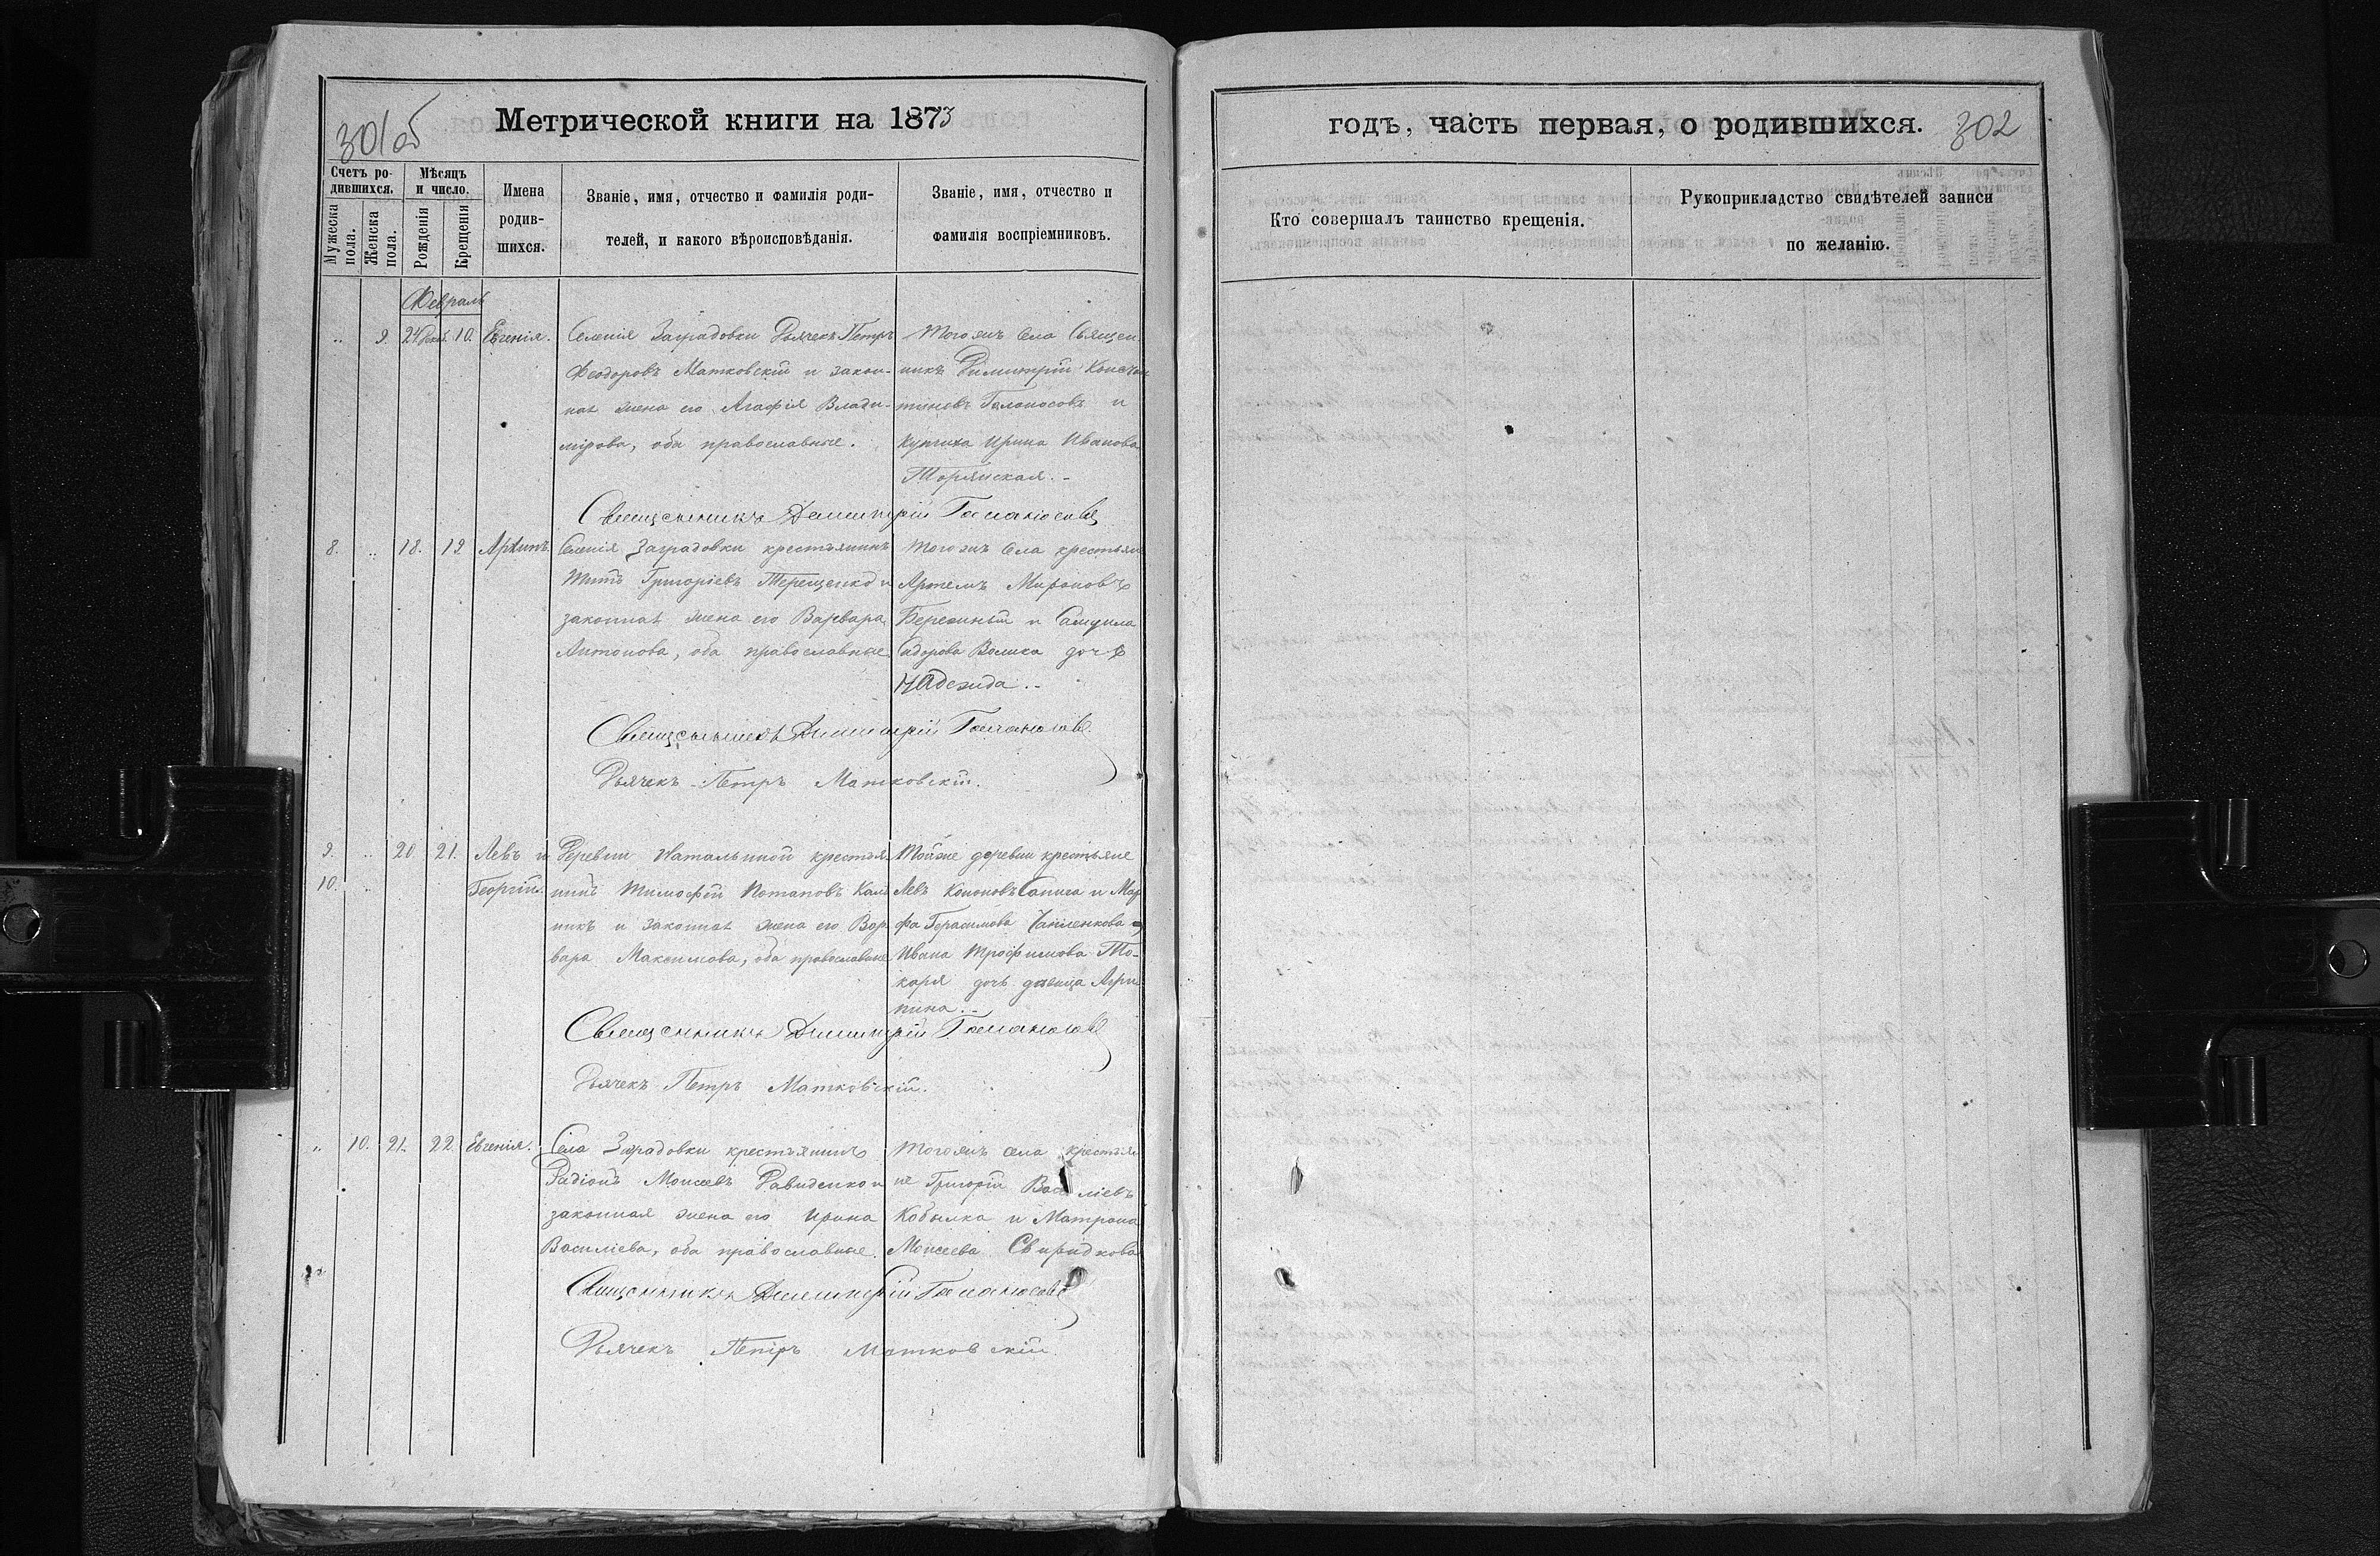 301 об
Метрической книги на 1873
Счетъ ро-
дившихся.
Мѣсяцъ
и число.
Мужеска
пола.
Женска
пола.
Рожденія
Крещенія
Имена
родив-
шихся.
Званіе, имя, отчество и фамилія роди-
телей, и какого вѣроисповѣданія.
Званіе, имя, отчество и
фамилія воспріемниковъ.
Февраль
„ 9. 24 10. Евгенія.
Селенія Заградовки Дьячекъ Петръ
Феодоровъ Матковскій и закон-
ная жена его Агафія Влади-
мірова, оба православные.
Того жъ села Священ
никъ Димитрій Констан
тиновъ и
купчиха Ирина Иванова
Священникъ Димитрій
8. „ 18. 19 Архипъ.
Селенія Заградовки крестьянинъ
Титъ Григоріевъ Терещенко и
законная жена его Варвара
Антонова, оба православные.
Того жъ села крестьяне
Артемъ Мироновъ
и Самуила
дочь
Надежда.
Священникъ Димитрій
Дьячекъ Петръ Матковскій.
9. „ 20 21. Левъ и
10. „ Георгій.
Деревни Натальиной крестья
нинъ Тимофей Потаповъ
никъ и законная жена его Вар
вара Максимова, оба православные
Той же деревни крестьяне
Левъ Кононовъ Сапига и Мар
фа Герасимова и
Ивана Трофимова То-
каря дочь девица Агри
пина.
Священникъ Димитрій
Дьячекъ Петръ Матковскій.
„ 10. 21. 22. Евгенія.
Села Заградовки крестьянинъ
Радіонъ Моисеевъ Давиденко и
законная жена его Ирина
Василіева, оба православные.
Того жъ села крестья
не Григорій Василіевъ
Кобылка и Матрона
Моисеева Свиридкова
Священникъ Димитрій
Дьячекъ Петръ Матковскій.
годъ, часть первая, о родившихся. 302
Кто совершалъ таинство крещенія.
Рукоприкладство свидѣтелей записи
по желанію.